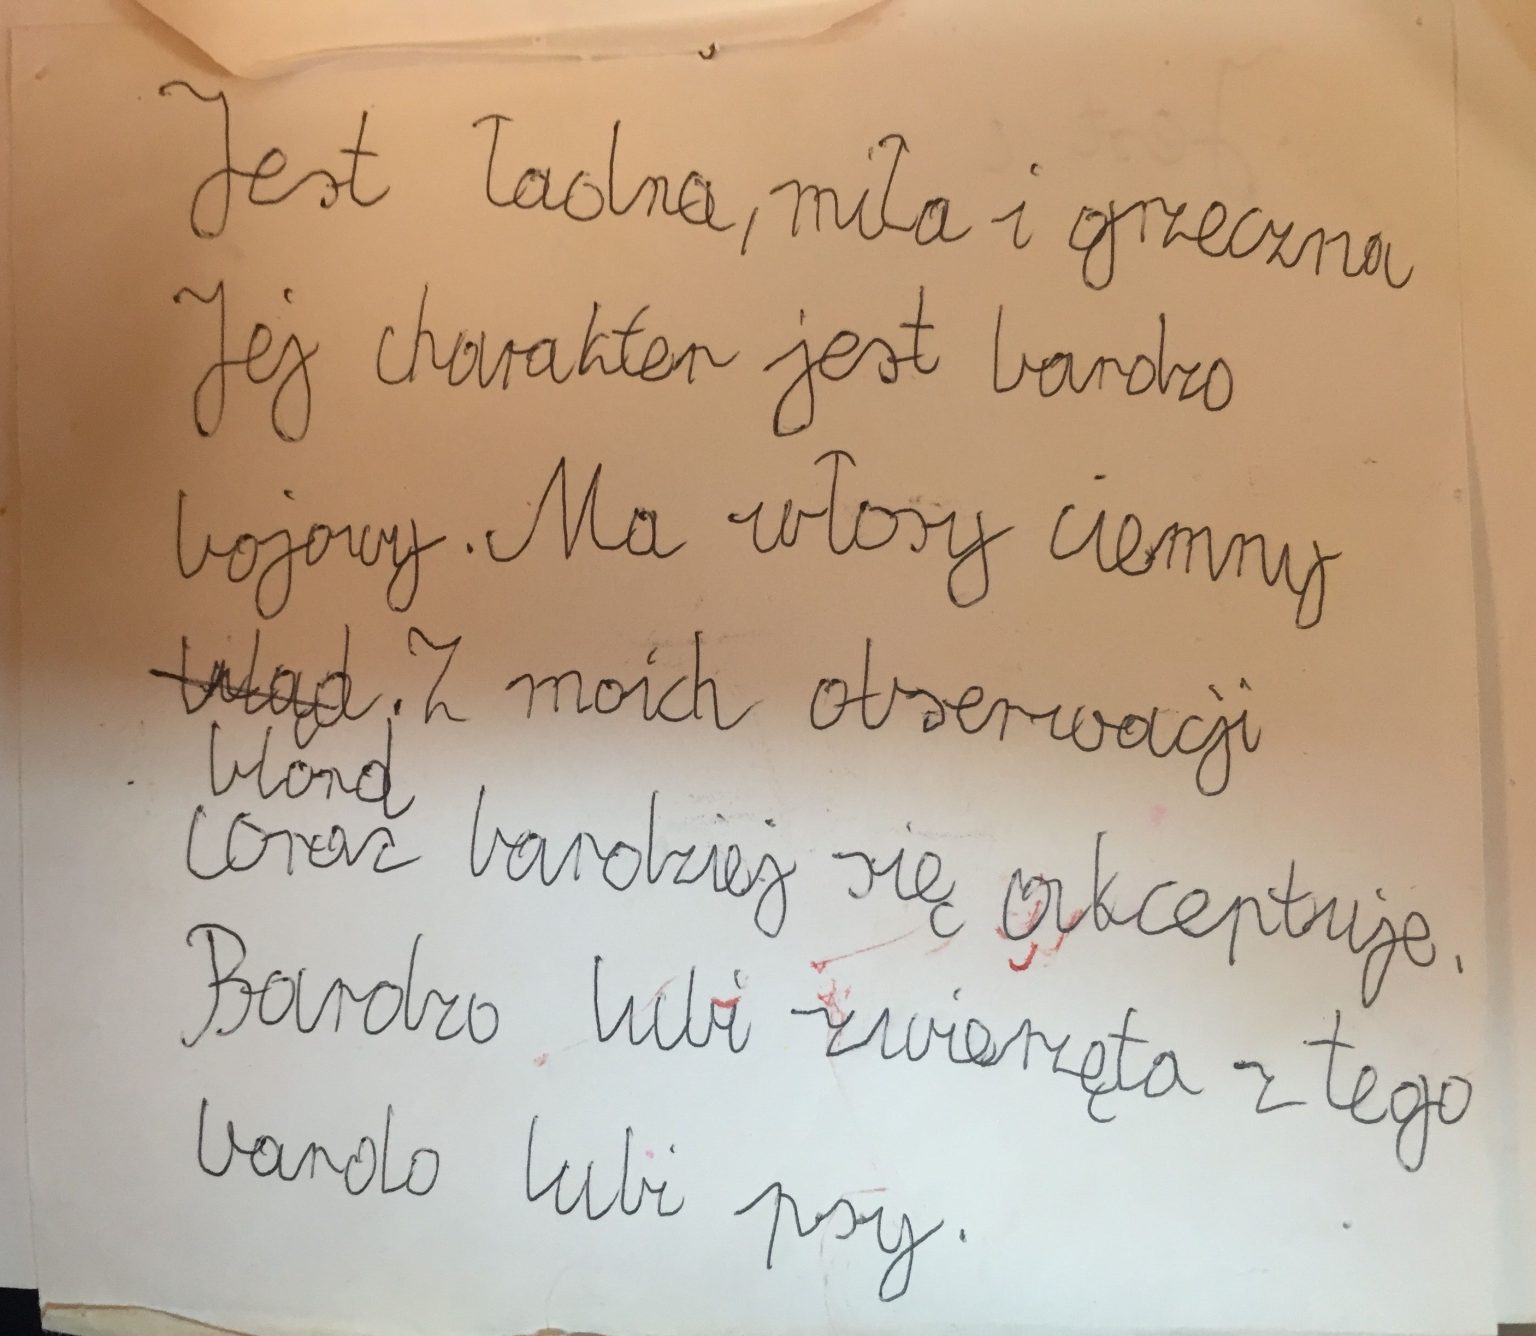 Jest ładna, miła i grzeczna
Jej charakter jest bardzo
bojowy. Ma włosy ciemny
. Z moich obserwacji
blond
coraz bardziej się akceptuje.
Bardzo lubi zwierzęta z tego
bardo lubi psy.